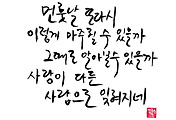 먼훗날 또다시
이렇게 마주칠 수 있을까
그대로 알아볼 수 있을까
사랑이 다른
사람으로 잊혀지네